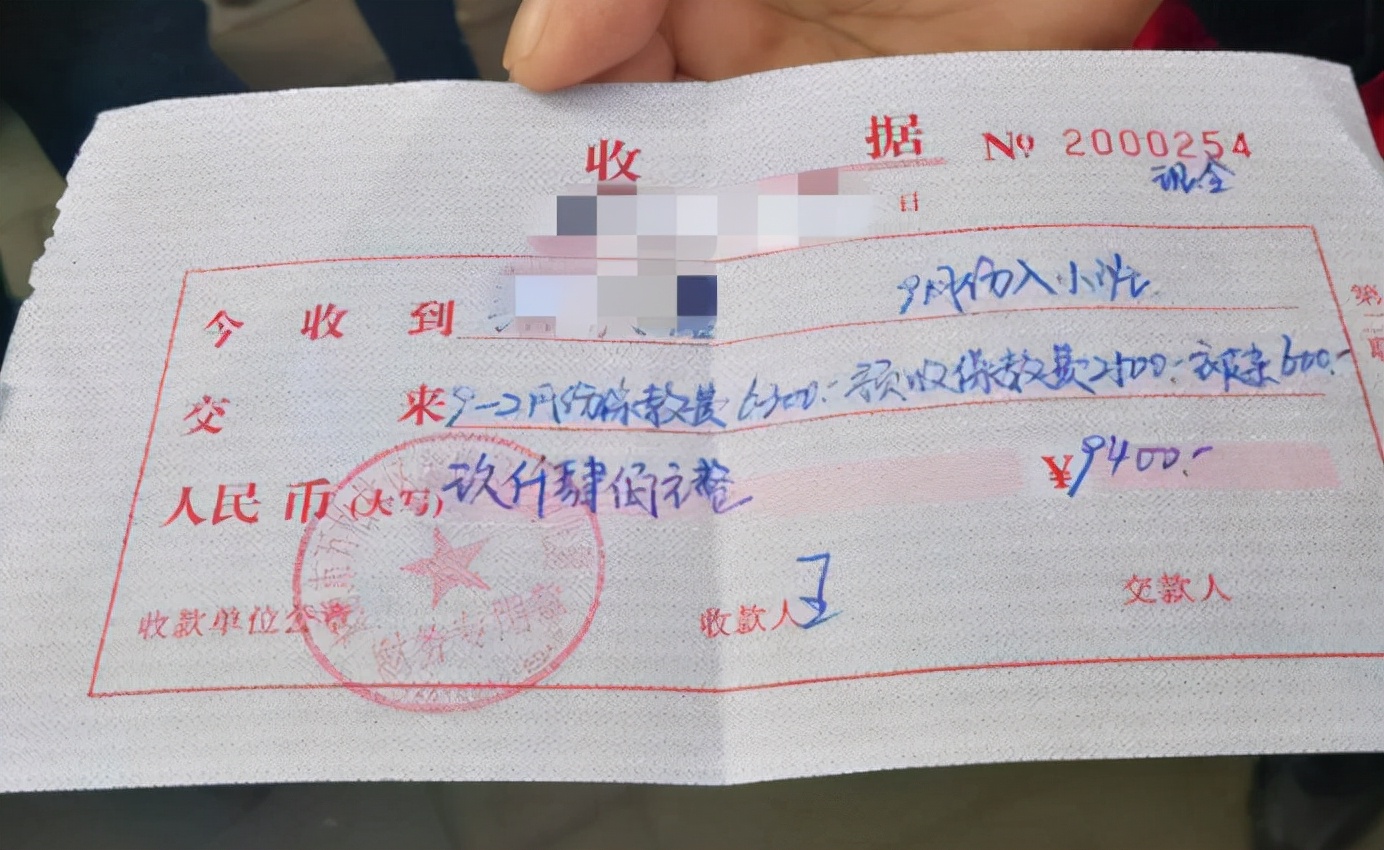 收 据 № 2000254
现金
日
今 收 到 9月份入小班
交 来 9-2月份保教费6300.- 预收保教费2500.- 衣被杂600.-
人民币(大写) 玖仟肆佰元整 ¥9400.-
收款单位公章 收款人 王 交款人
财务专用章
第
联